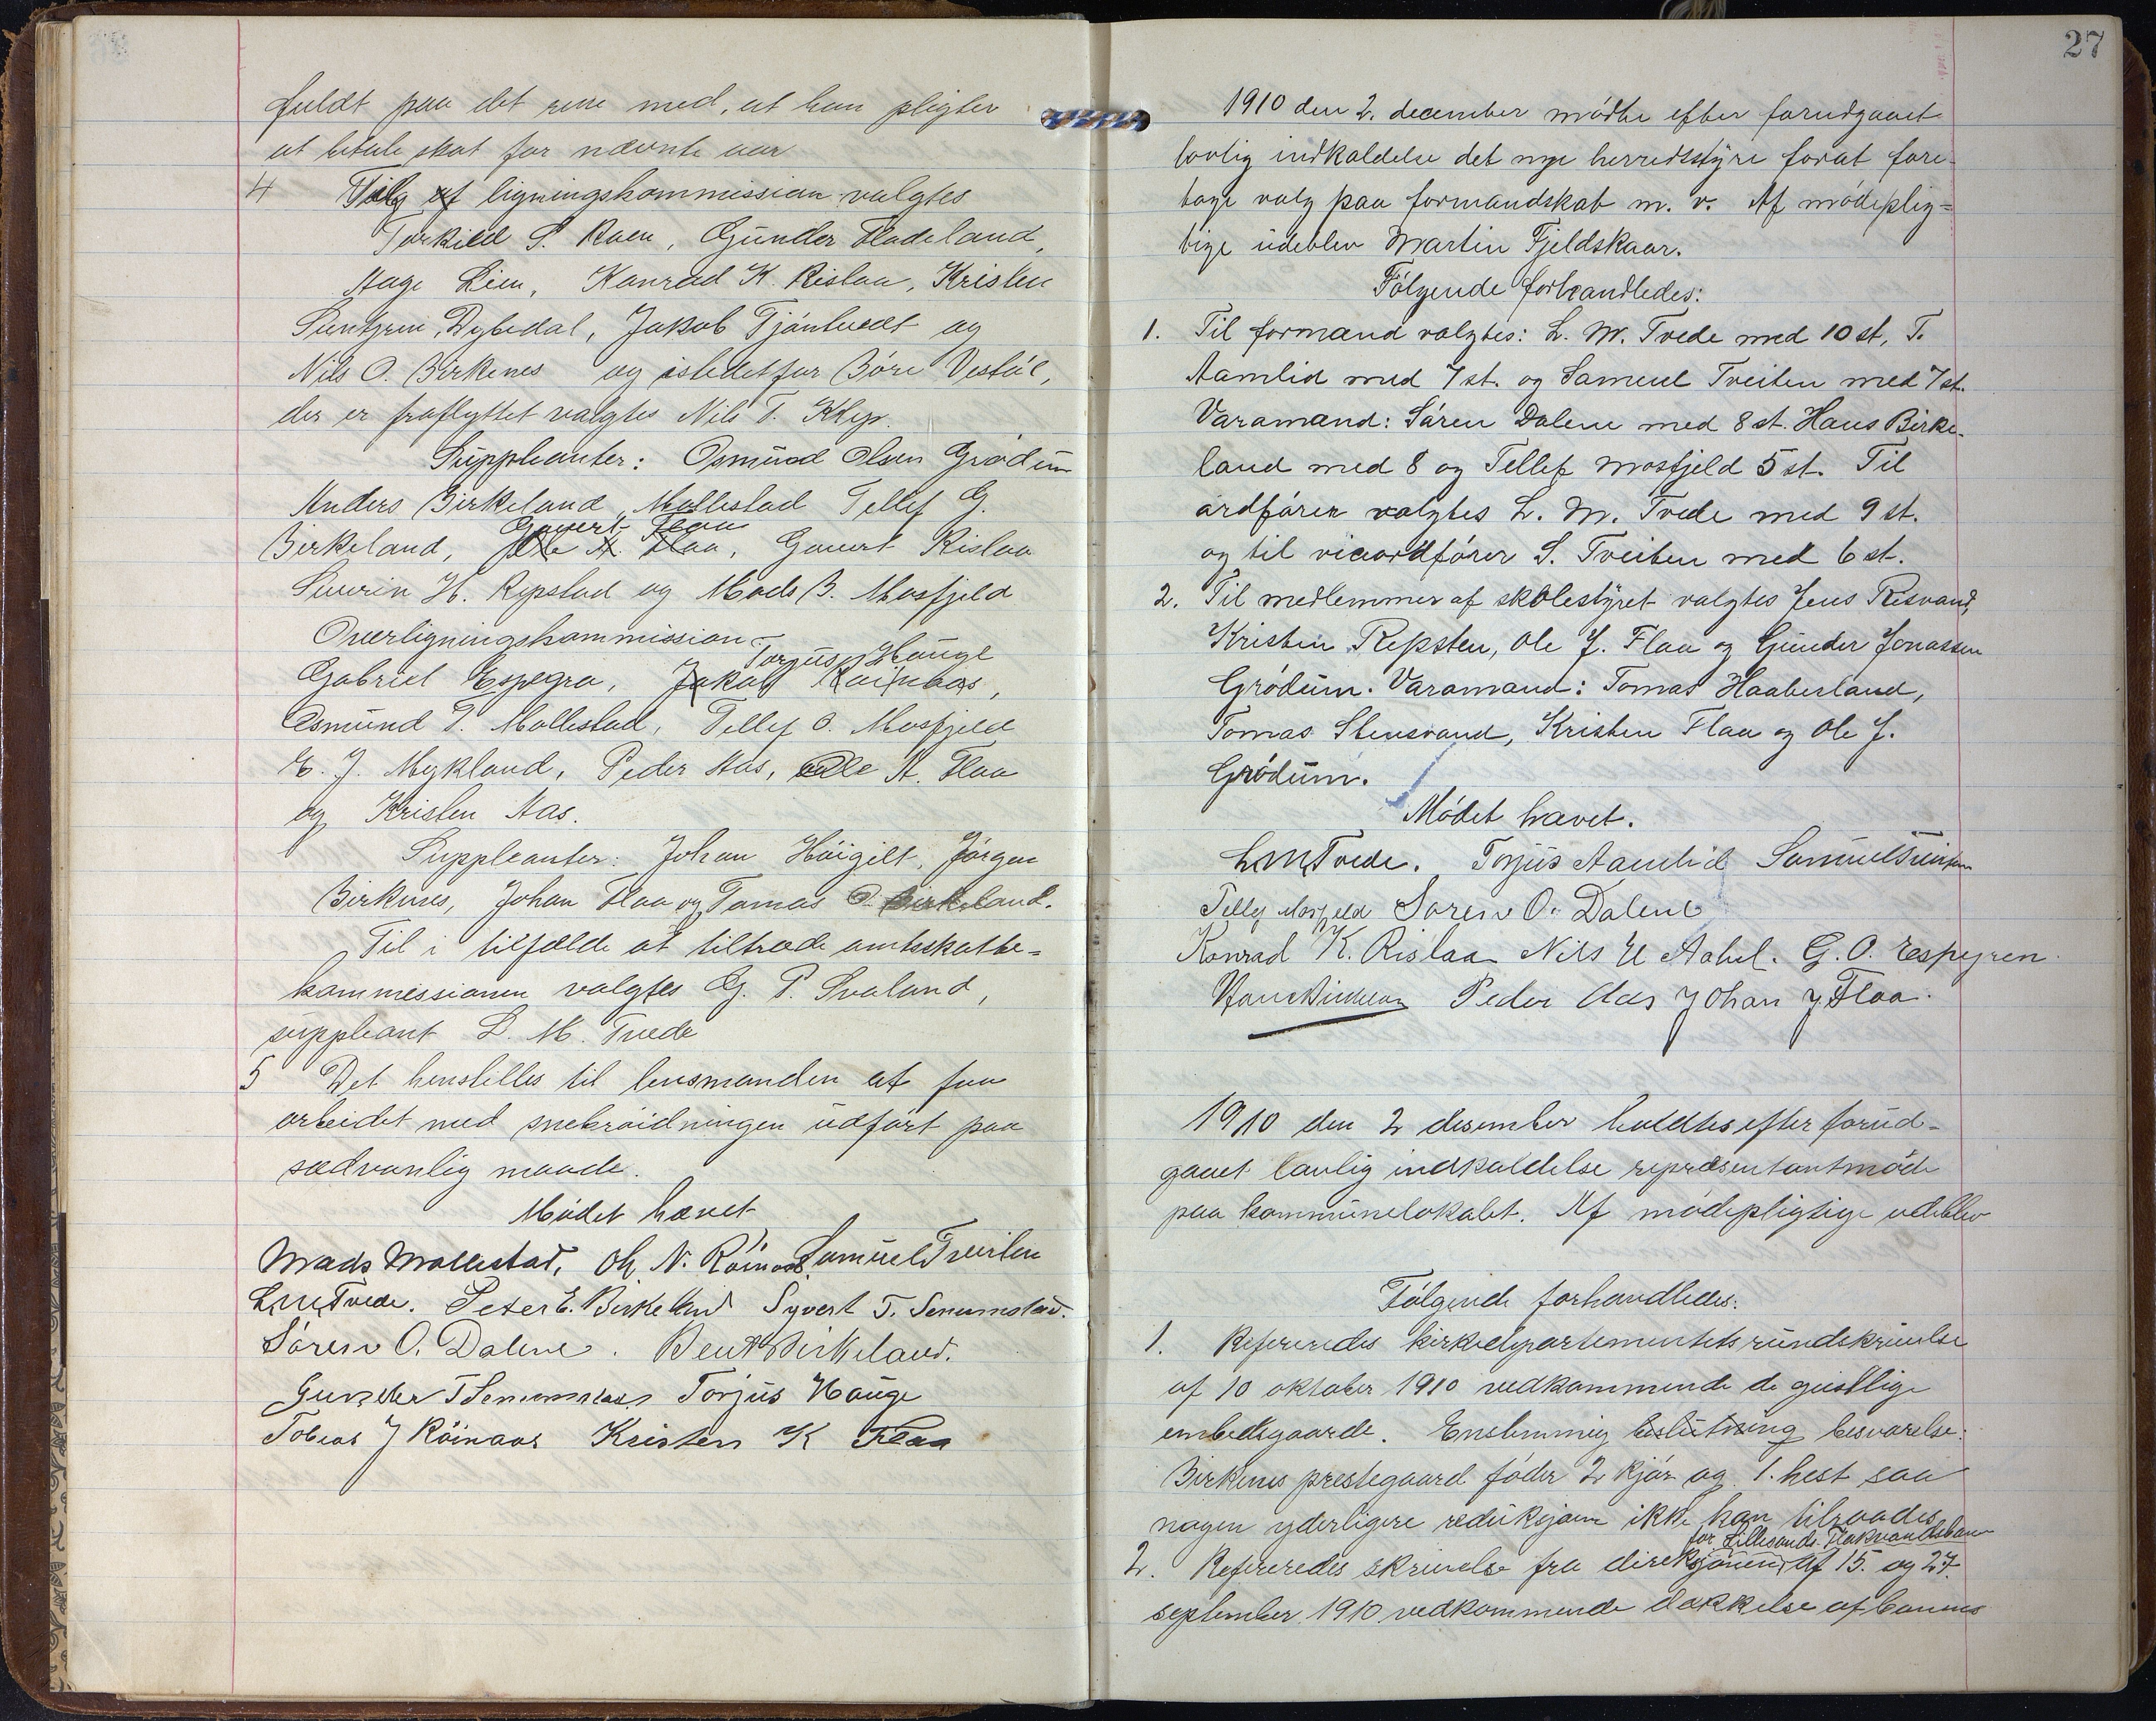 fuldt paa det rene med, at han pligter
at betale skat for nævnte aar
4 Valg af ligningskommission valgtes
Torkild S. Raen, Gunder Fladeland,
Aage Lien, Konrad K. Rislaa, Kristen
Dybedal, Jakob Tjöntvedt og
Nils O. Birkenes og istedetfor Böre Vestöl,
der er fraflyttet valgtes Nils T. Klep.
Suppleanter: Osmund Olsen Grödum
Anders Birkeland, Mollestad Tellef G.
Govert Flaa
Birkeland, Ole A. Flaa, Govert Rislaa
Severin H. Repstad og Mads B. Mosfjeld
Overligningskommission
Torjus Hauge
Gabriel Espegra, Jakob Röinaas,
Osmund T. Mollestad, Tellef O. Mosfjeld
E. J. Mykland, Peder Aas, Ole A. Flaa
og Kristen Aas.
Suppleanter: Johan Höigilt, Jörgen
Birkenes, Johan Flaa og Tomas O. Birkeland.
Til i tilfælde at tiltræde amtsskatte-
kommissionen valgtes G. P. Svaland,
suppleant L. M. Tvede
5 Det henstilles til lensmanden at faa
arbeidet med snebröidningen udfört paa
sædvanlig maade.
Mödet hævet
Mads Mollestad, Ole N. Röinaas Samuel Tveiten
L.M.Tvede. Peter E. Birkeland Syvert T. Senumstad.
Sören O. Dalene. Bent Birkeland.
Gunder T Senumstad Torjus Hauge
Tobias J Röinaas Kristen K Flaa
27
1910 den 2. december mödte efter forudgaaet
lovlig indkaldelse det nye herredsstyre forat fore-
tage valg paa formandskab m. v. Af mödeplig-
tige udeblev Martin Fjeldskaar.
Fölgende forhandledes:
1. Til formænd valgtes: L. M. Tvede med 10 st, T.
Aamlid med 7 st. og Samuel Tveiten med 7 st.
Varamænd: Sören Dalene med 8 st. Hans Birke-
land med 8 og Tellef Mosfjeld 5 st. Til
ordförer valgtes L. M. Tvede med 9 st.
og til viceordförer S. Tveiten med 6 st.
2. Til medlemmer af skolestyret valgtes Jens Risvand,
Kristen Repsten, Ole J. Flaa og Gunder Jonassen
Grödum. Varamænd: Tomas Haaberland,
Tomas Stensvand, Kristen Flaa og Ole J.
Grödum.
Mödet hævet.
L.M.Tvede. Torjus Aamlid Samuel Tveiten
Tellef Mosfjeld Soren O. Dalene
Konrad K. Rislaa Nils E Aabel. G. O. Espegren.
Hans Birkeland Peder Aas Johan J Flaa.
1910 den 2 desember holdtes efter forud-
gaaet lovlig indkaldelse repræsentantmöde
paa kommunelokalet. Af mödepligtige udeblev
Fölgende forhandledes:
1. Refereredes kirkedepartementets rundskrivelse
af 10 oktober 1910 vedkommende de geistlige
embedsgaarde. Enstemmig beslutning besvarelse:
Birkenes prestegaard föder 2 kjör og 1. hest saa
nogen yderligere reduksjon ikke kan tilraades
for Lillesands-Flaksvandsbanen
2. Refereredes skrivelse fra direksjonen af 15. og 27.
september 1910 vedkommende dækkelse af banens